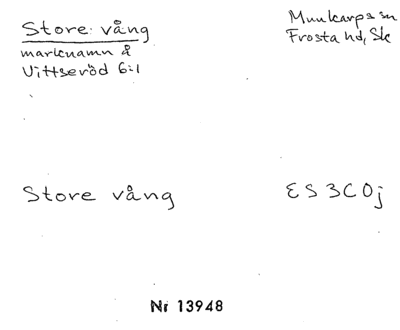 Store vång
marknamn å
Vittseröd 6:1
Munkarps sn
Frosta hd, Sk
Store vång
ES3C0j
Nr 13948